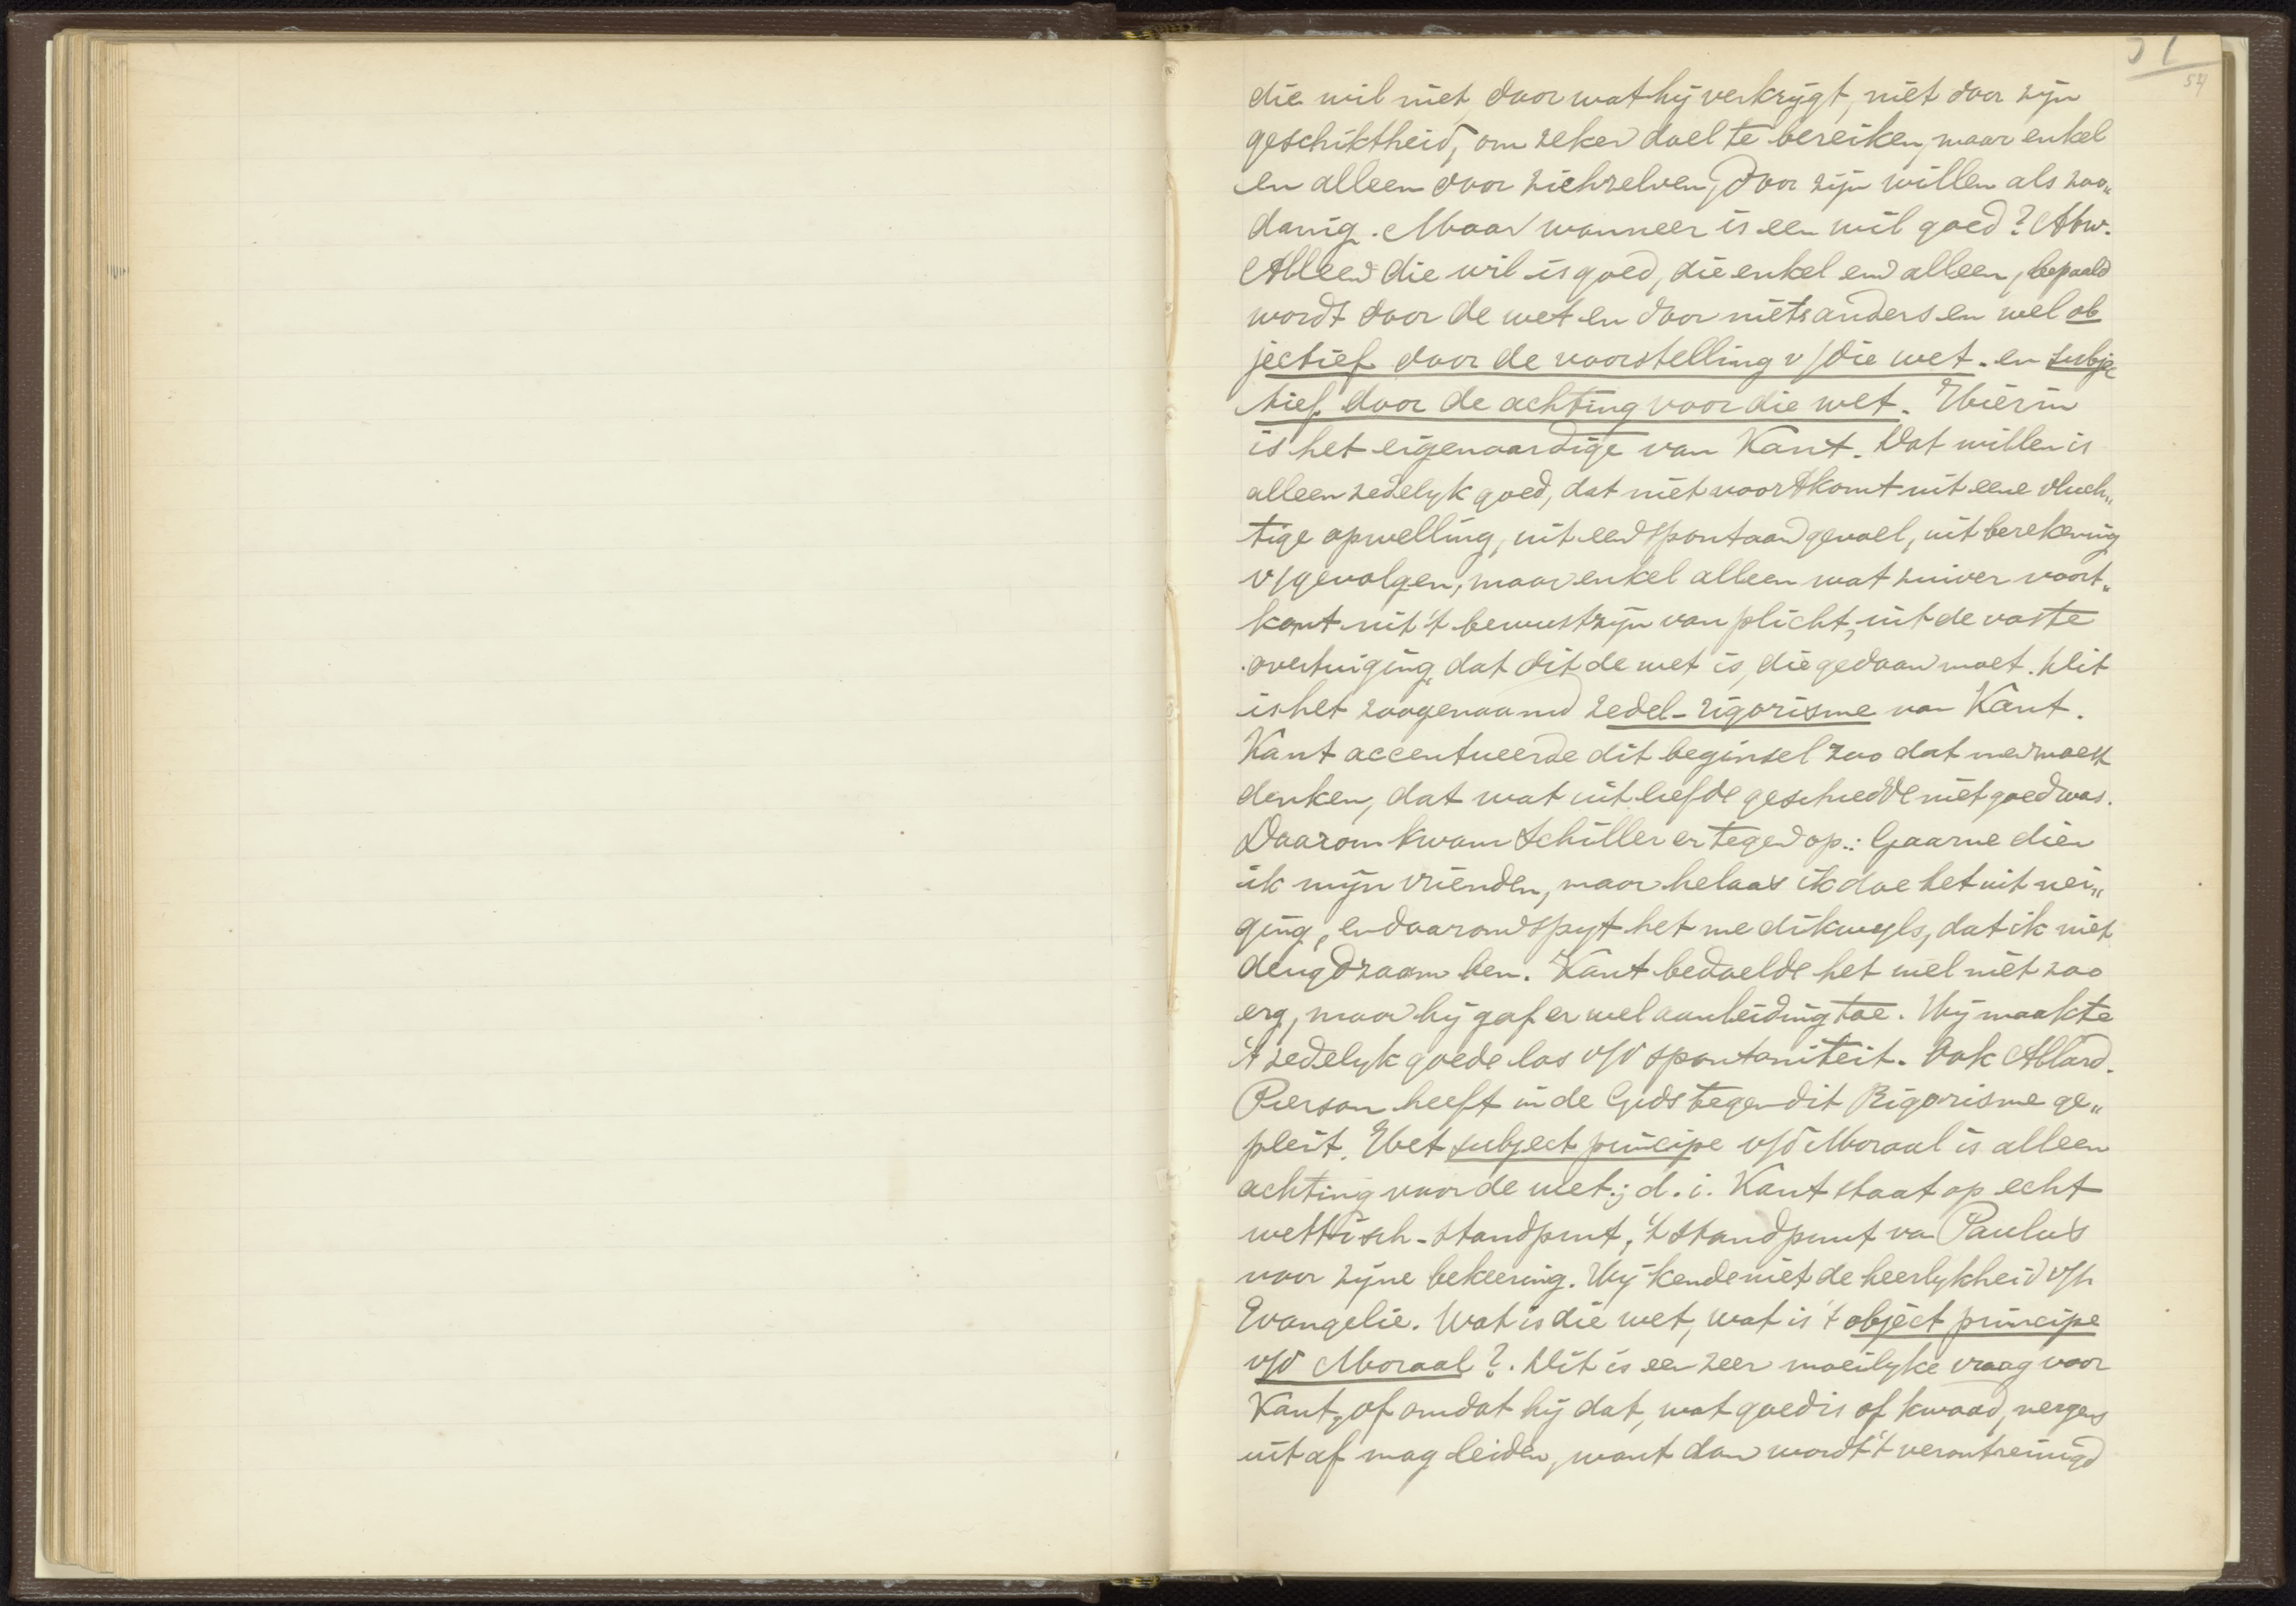 51
54
die wil niet door wat hij verkrygt, niet door zijn
geschiktheid, om zeker doel te bereiken, maar enkel
en alleen door zichzelven, door zijn willen als zoo„
danig. Maar wanneer is een wil goed? Antw.
Alleen die wil is goed, die enkel en alleen, bepaald
wordt door de wet en door niets anders en wel ob
jectief door de voorstelling v/die wet. en subjec
tief door de achting voor die wet. Hierin
is het eigenaardige van Kant. Dat willen is
alleen zedelyk goed, dat niet voortkomt uit eene vluch„
tige opwelling, uit een spontaan gevoel, uit berekening
v/gevolgen, maar enkel alleen wat zuiver voort„
komt uit 't bewustzijn van plicht, uit de vaste
overtuiging dat dit de wet is, die gedaan moet. Dit
is het zoogenaamd zedel-rigorisme van Kant.
Kant accentueerde dit beginsel zoo dat men moest
denken, dat wat uit liefde geschiedde niet goed was.
Daarom kwam Schiller er tegen op.: Gaarne dien
ik mijn vrienden, maar helaas ik doe het uit nei„
ging, en daarom spyt het me dikwyls, dat ik niet
deugdzaam ben. Kant bedoelde het wel niet zoo
erg, maar hij gaf er wel aanleiding toe. Hij maakte
't zedelyk goede los v/d spontaniteit. Ook Allard.
Pierson heeft in de Gids tegen dit Rigorisme ge„
pleit. Het subject principe v/d Moraal is alleen
achting voor de wet; d.i. Kant staat op echt
wettisch-standpunt, 't standpunt van Paulus
voor zijne bekeering. Hij kende niet de heerlykheid v/h
Evangelie. Wat is die wet, wat is 't object principe
v/d Moraal?. Dit is een zeer moeilyke vraag voor
Kant, of omdat hij dat, wat goed is of kwaad, nergens
uit af mag leiden, want dan wordt 't verontreinigd